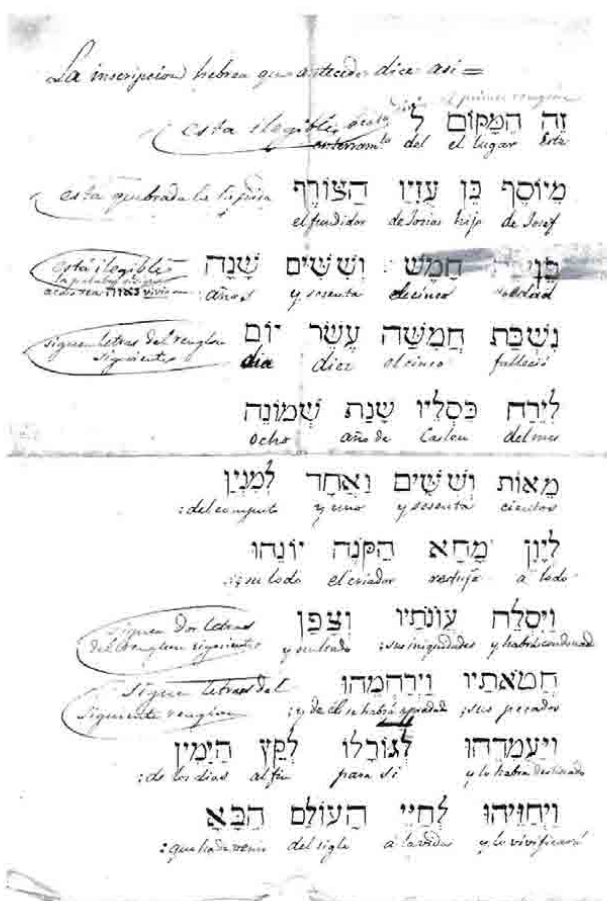 La inscripcion hebrea que antecede dice asi =
זֶה הַמָּקוֹם לְ esta ilegible
enterramto del el lugar Este
מִיוֹסֵף בֶּן עֻזִּיוּ הַצּוֹרֵף esta quebrada la lapida
el fundidor de Josias hijo de Josef
חָמֵשׁ וְשִׁשִּׁים שָׁנָה está ilegible
años y sesenta de cinco
נִשְׁבַּת חֲמִשָּׁה עָשָׂר יוֹם siguen letras del renglon siguiente
dia diez el cinco falleció
לְיֶרַח כִּסְלֵיו שְׁנַת שְׁמוֹנֶה
ocho año de Casleu del mes
מֵאוֹת וְשִׁשִּׁים וְאֶחָד לְמִנְיַן
del computo y uno y sesenta cientos
לְיָוָן מָחָא הַקֹּנֶה יוֹנֵהוּ
su lodo el criador a lodo
וְיִסְלַח עֲוֹנֹתָיו וְצָפַן siguen dos letras del renglon siguiente
sus iniquidades
חַטֹּאתָיו וִירַחֲמֵהוּ sigue letras del siguiente renglon
y de él se habrá apiadado sus pecados
וְיַעֲמִדֵהוּ לְגוֹרָלוֹ לְקֵץ הַיָּמִין
de los dias al fin para si y lo habra destinado
וִיחַיֵּיהוּ לְחַיֵּי הָעוֹלָם הַבָּא
que ha de venir del siglo á la vida y lo vivificará